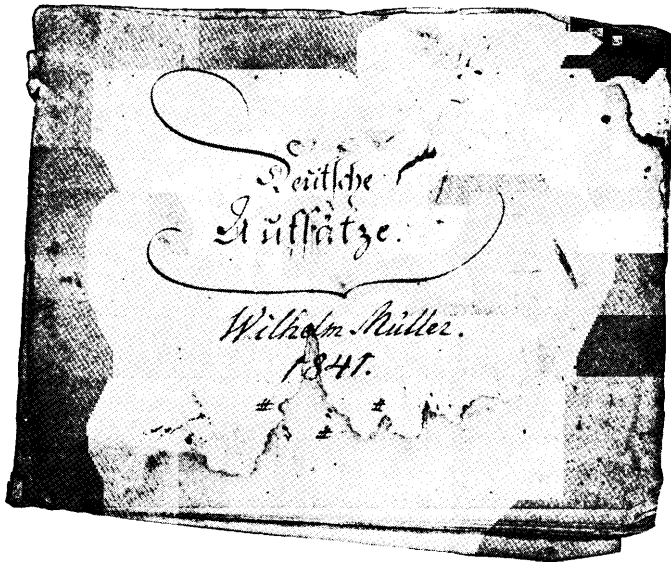 Deutsche
Aufsätze.
Wilhelm Müller.
1841.
# #
#